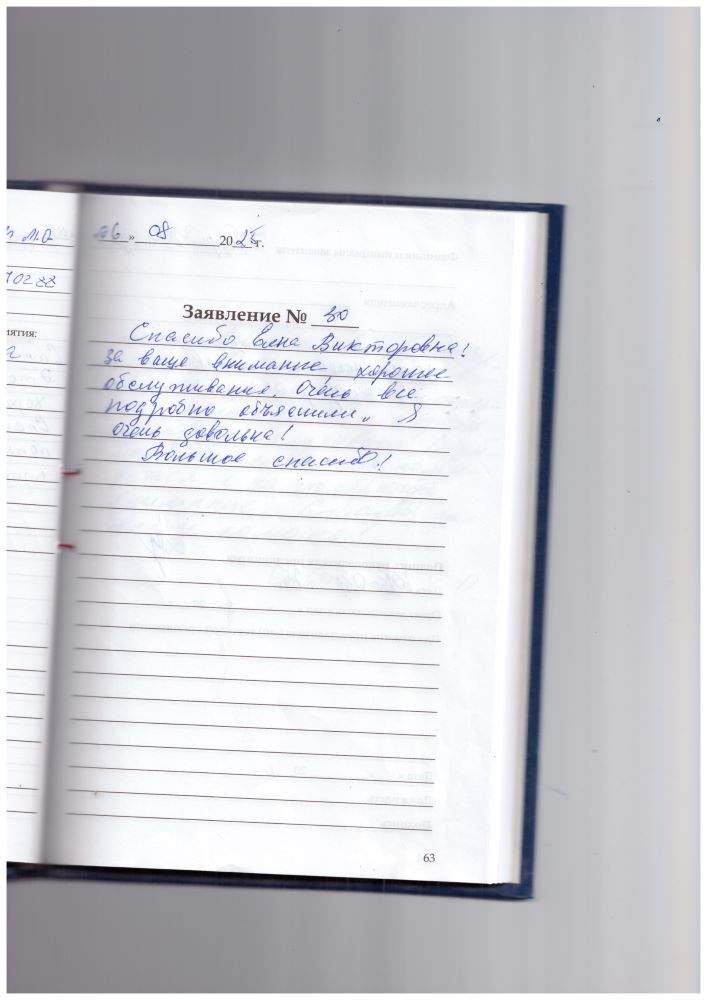 м.о
06 » 08 2025 г.
70288
Заявление № 30
иятия:
Спасибо Елена Викторовна!
за ваше внимание хорошее
обслуживание. Очень все
подробно объяснили. Я
очень довольна!
Большое спасибо!
63